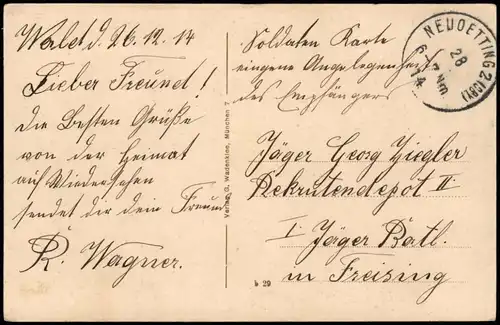 Wald d. 26.12.14
Lieber Freund!
Die Besten Grüße
von der Heimat
auf Wiedersehen
sendet dir dein Freund
R. Wagner.
Verlag G. Wadenklee, München T
Soldaten Karte
eigene Angelegenheit
des Empfängers
NEUOETTING 2 (BY)
28
7 Nm
14
Jäger Georg Ziegler
Rekrutendepot II.
I. Jäger Batl.
in Freising
b 29